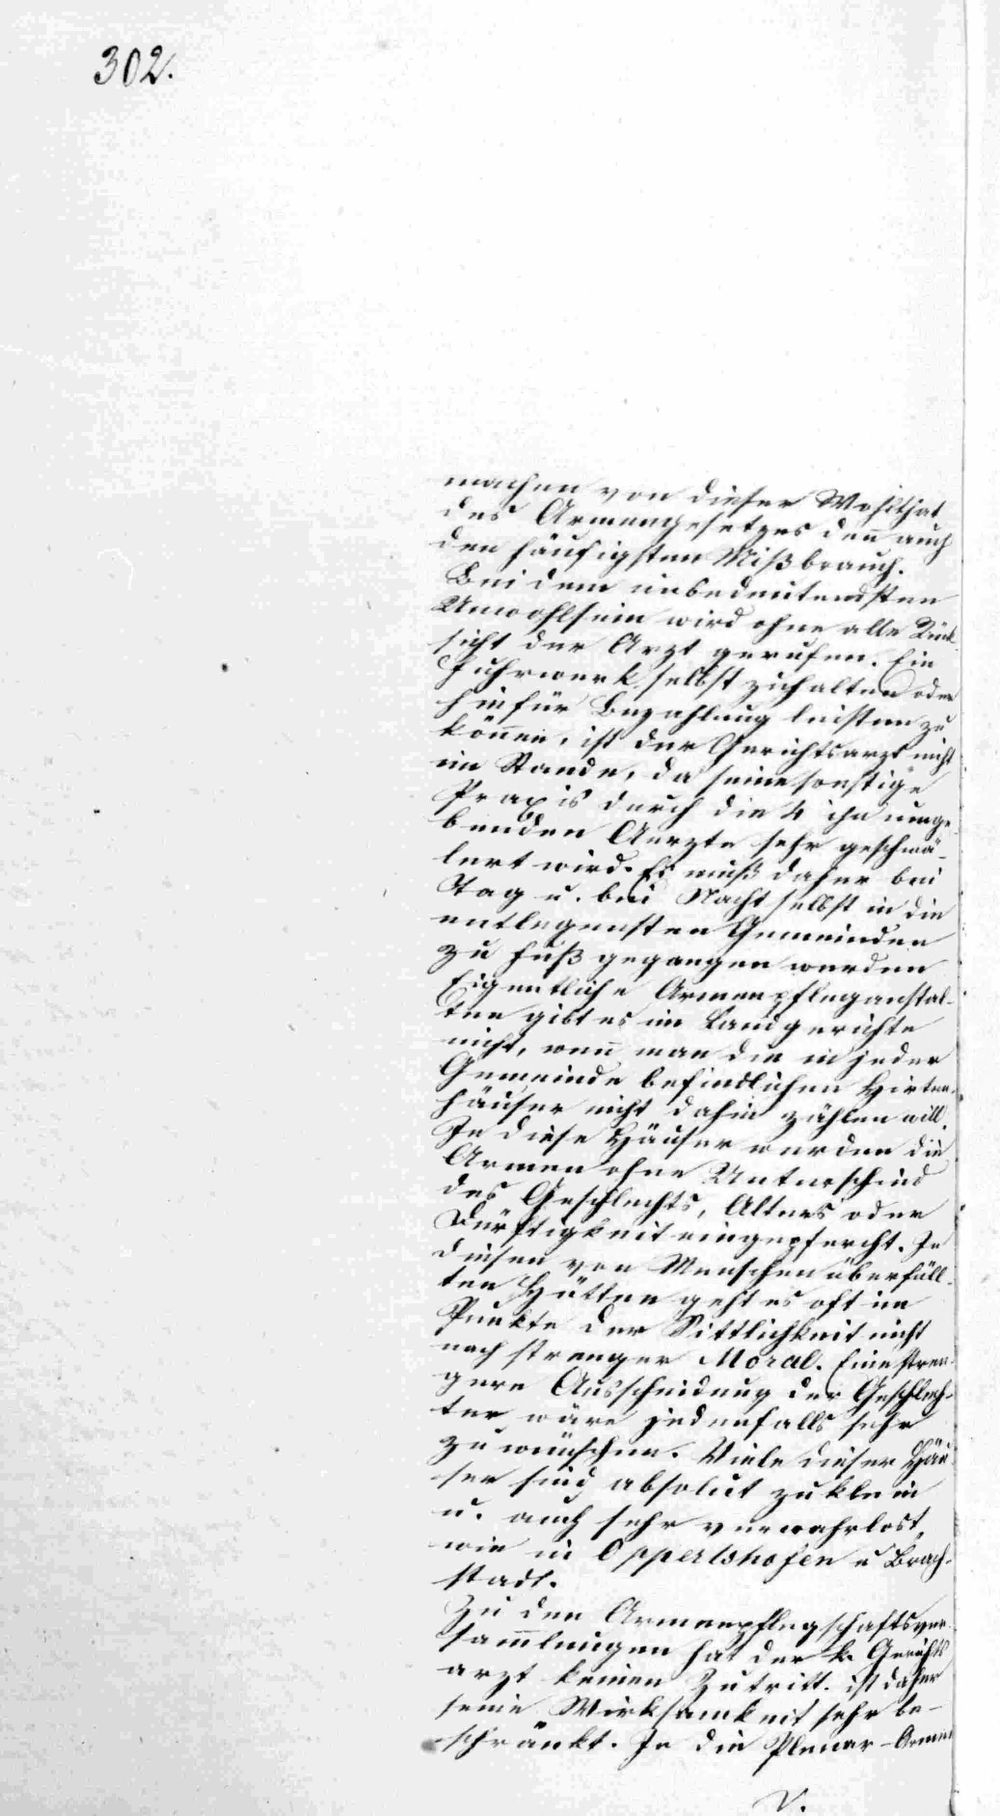 302.
machen von dieser Wohlthat
des Armengesetzes den̄ auch
den häufigsten Mißbrauch.
Bei dem unbedeutendsten
Unwohlsein wird ohne alle Rück-
sicht der Arzt gerufen. Ein
Fuhrwerk selbst zu halten oder
hiefür Bezahlung leisten zu
kön̄en, ist der Gerichtsarzt nicht
im Stande, da seine sonstige
Praxis durch die 4 ihn umge-
benden Aerzte sehr geschmä-
lert wird. Es muß daher bei
Tag u. bei Nacht selbst in die
entlegensten Gemeinden
zu Fuß gegangen werden
Eigentliche Armenpfleganstal-
ten gibt es im Landgerichte
nicht, wen̄ man die in jeder
Gemeinde befindlichen Hirten-
häuser nicht dahin zählen will.
In diese Häuser werden die
Armen ohne Unterschied
des Geschlechts, Alters oder
Dürftigkeit eingepfercht. In
diesen von Menschen überfüll-
ten Hütten geht es oft im
Punkte der Sittlichkeit nicht
nach strenger Moral. Eine stren-
gere Ausscheidung der Geschlech-
ter wäre jedenfalls sehr
zu wünschen. Viele dieser Häu-
ser sind absolut zu klein
u. auch sehr verwahrlost,
wie in Oppertshofen u Brach-
stadt.
Zu den Armenpflegschaftsver-
sam̄lungen hat der k. Gerichts
arzt keinen Zutritt. ist daher
seine Wirksamkeit sehr be-
schränkt. In die Plenar-Armen